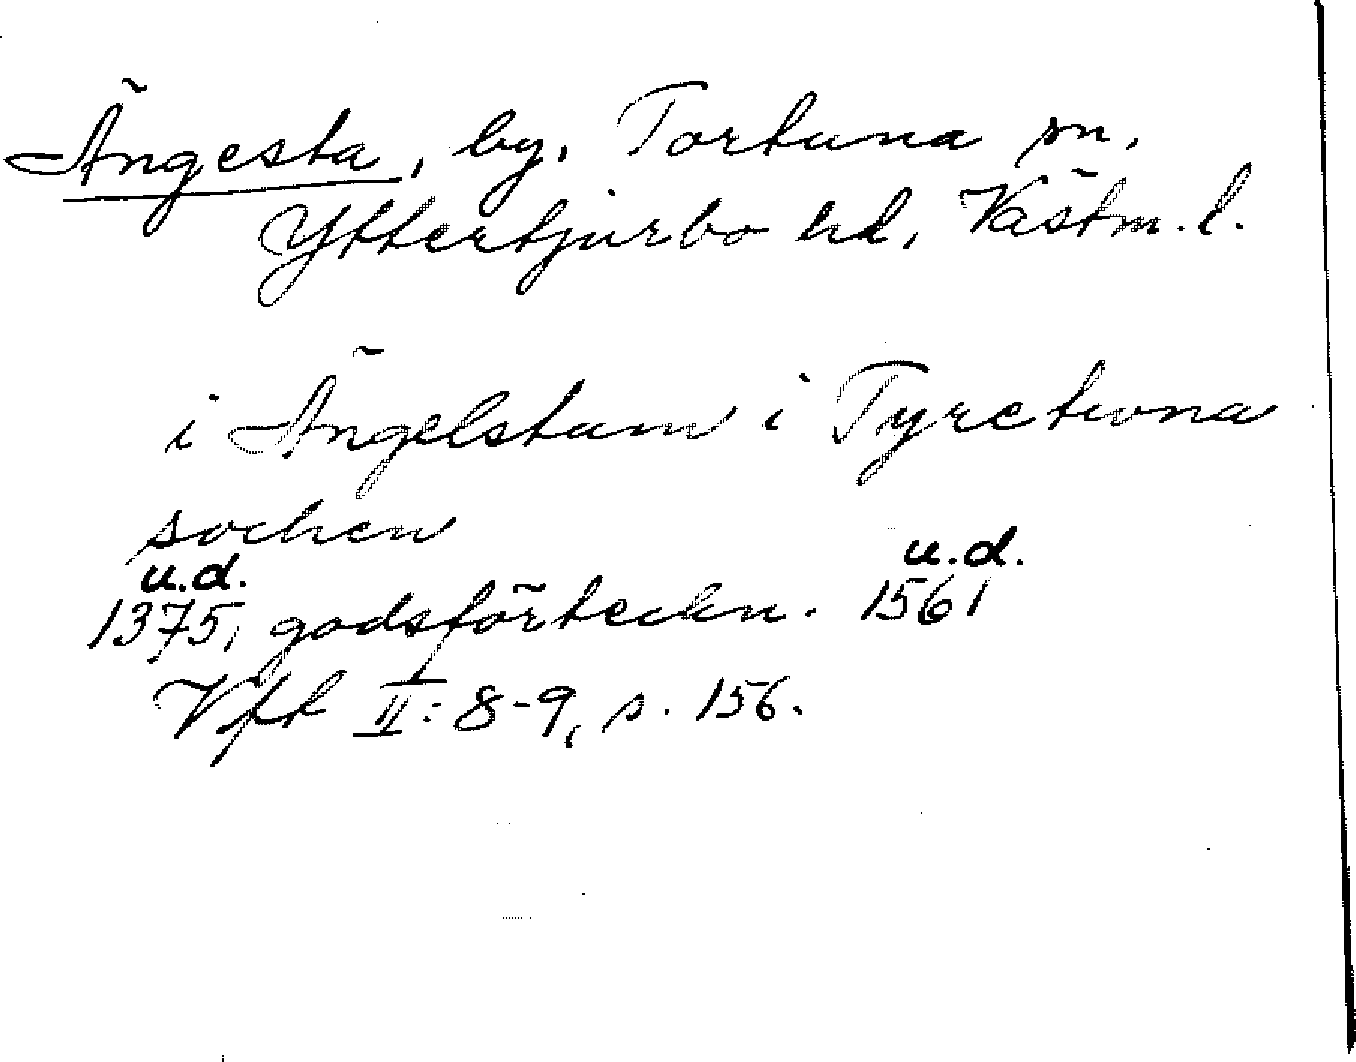 Ängesta, by, Tortuna sn,
Yttertjurbo hd, Västm. l.
i Ängelstum i Tyretuna
socken
u.d. u.d.
1375, godsförteckn. 1561
Vft II: 8-9, s. 156.